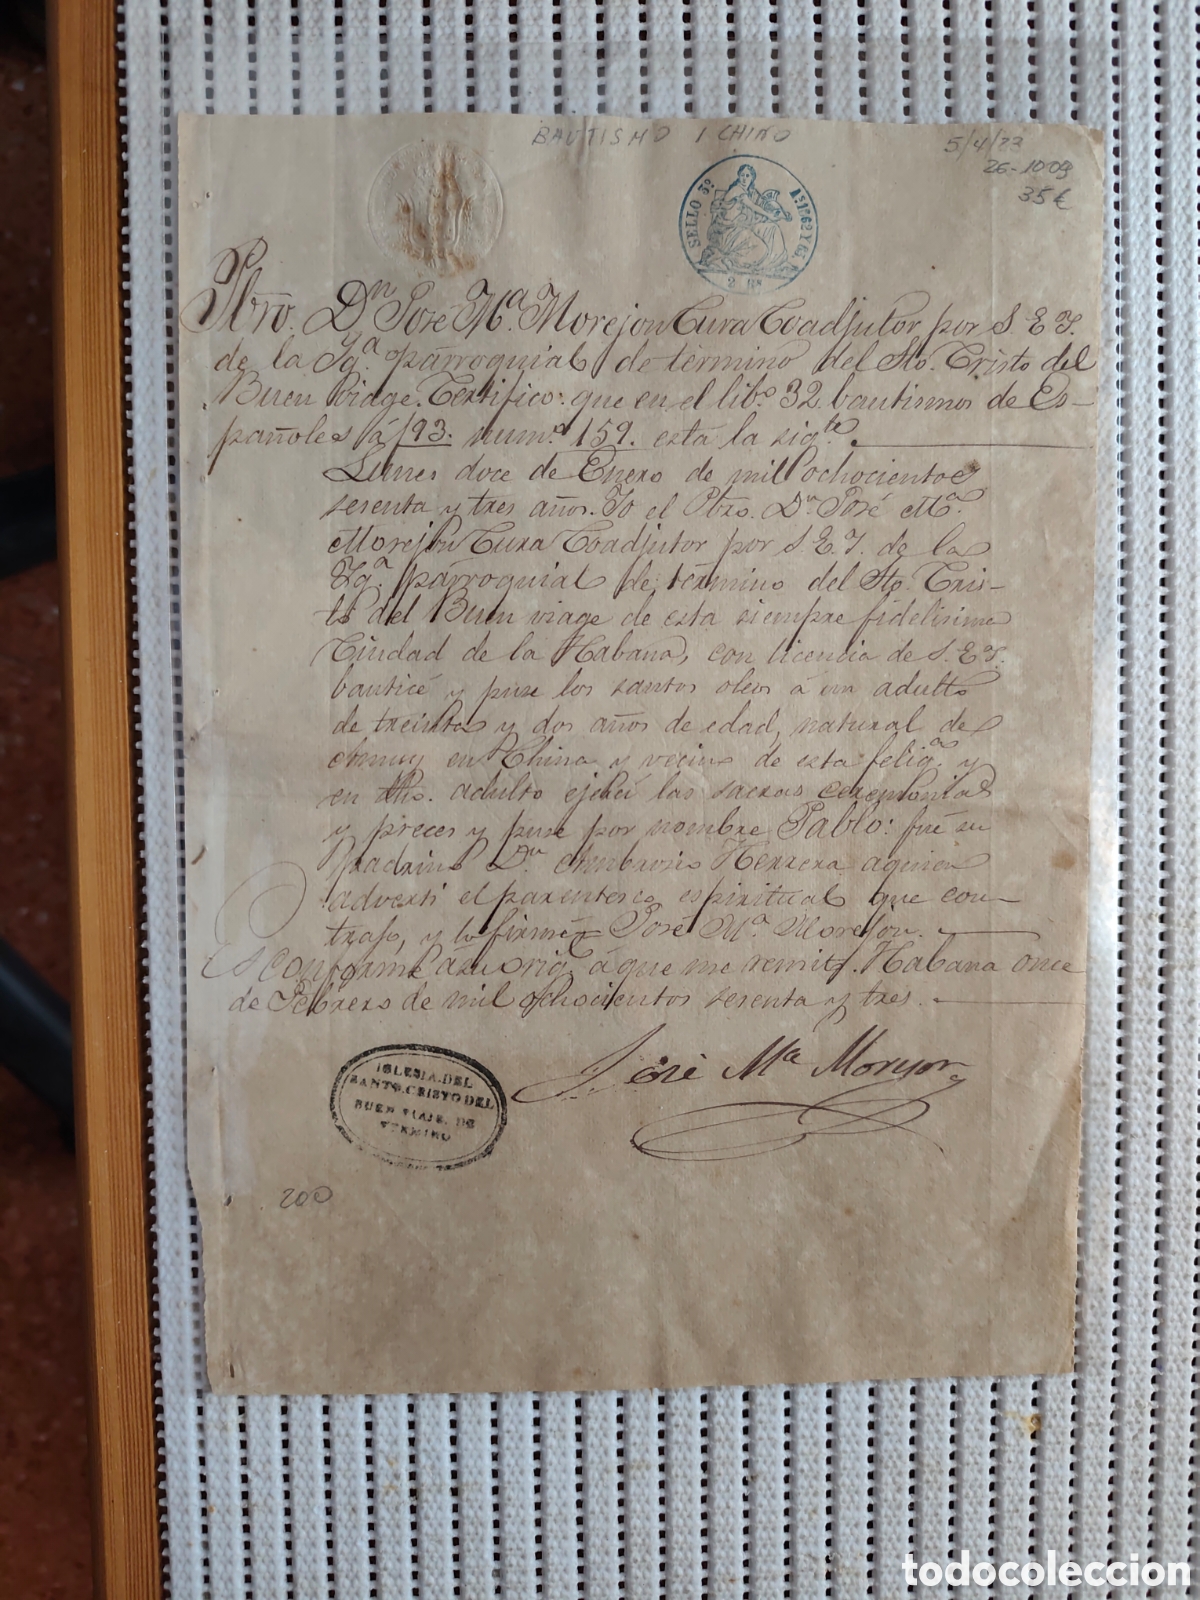 BAUTISMO 1 CHINO
5/4/23
26-10-09
35€
SELLO 3º Aº 1862 Y 63
2 Rs
Pbro. Dn José Mª Morejon Cura Coadjutor por S. E. Y.
de la Ygª parroquial de término del Sto. Cristo del
Buen viage. Certifico: que en el libº 32 bautismos de Es-
pañoles á f 93. numº 159. está la sigte.
Lunes doce de Enero de mil ochocientos
sesenta y tres años. Yo el Pbro. Dn José Mª
Morejon Cura Coadjutor por S. E. Y. de la
Ygª parroquial de término del Sto. Cris-
to del Buen viage de esta siempre fidelisima
Ciudad de la Habana, con licencia de S. E. Y.
bauticé y puse los santos oleos á un adulto
de treinta y dos años de edad, natural de
Amuy en China y vecino de esta feligª y
en dho. adulto ejercí las sacras ceremonias
y preces y puse por nombre Pablo: fué su
padrino Dn Ambrosio Herrera á quien
advertí el parentesco espiritual que con-
trajo, y lo firmé= José Mª Morejon.
Es conforme á su orig. á que me remito. Habana once
de Febrero de mil ochocientos sesenta y tres.
José Mª Morejon
IGLESIA DEL
SANTO CRISTO DEL
BUEN VIAJE DE
TERMINO
200
todocoleccion